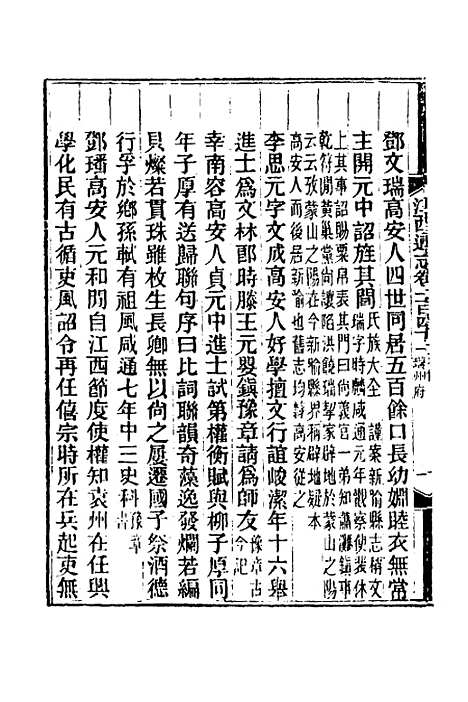 江西通志卷一百四十一 瑞州府 一
鄧文瑞高安人四世同居五百餘口長幼嫻睦衣無常
主開元中詔旌其閭氏族大全 謹案新喻縣志稱文
瑞字時鵬咸通元年觀察使裴休
上其事詔賜粟帛表其門曰尚義官一弟知蕭灘鎮事
乾符間黃巢黨尚讓陷洪饒瑞挈家避地於蒙山之陽
云云攷蒙山之陽在今新喻縣界稱辟地疑本
高安人而後居新喻也舊志均歸高安從之
李思元字文成高安人好學擅文行誼峻潔年十六舉
進士爲文林郎時滕王元嬰鎮豫章請爲師友豫章古
今記
幸南容高安人貞元中進士試第權衡賦與柳子厚同
年子厚有送歸聯句序曰比詞聯韻奇藻逸發爛若編
貝燦若貫珠雖枚生長卿無以尚之屢遷國子祭酒德
行孚於鄉孫軾有祖風咸通七年中三史科豫章
書
鄧璠高安人元和閒自江西節度使權知袁州在任興
學化民有古循吏風詔令再任僖宗時所在兵起吏無